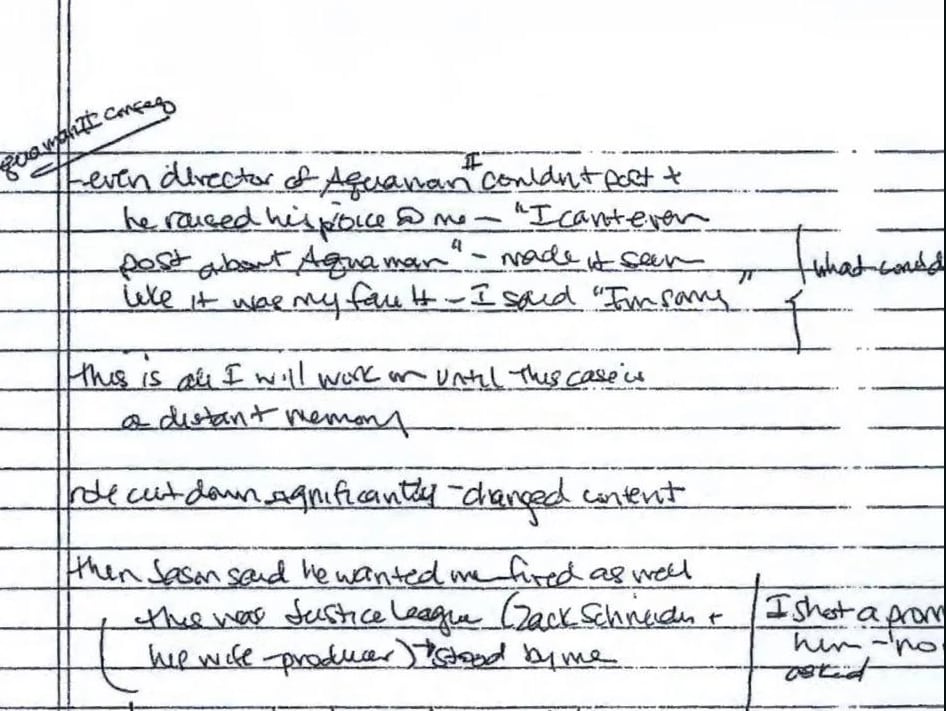 quaman II conseq
-even director of Aquaman II couldn't post +
he raised his voice @ me - "I can't even
post about Aquaman" - made it seem
like it was my fault - I said "I'm sorry"
what could
this is all I will work on until this case is
a distant memory
role cut down significantly - changed content
then Jason said he wanted me fired as well
this was Justice League (Zack Schneider +
his wife - producer) → stood by me
I shot a prom
him - no
asked